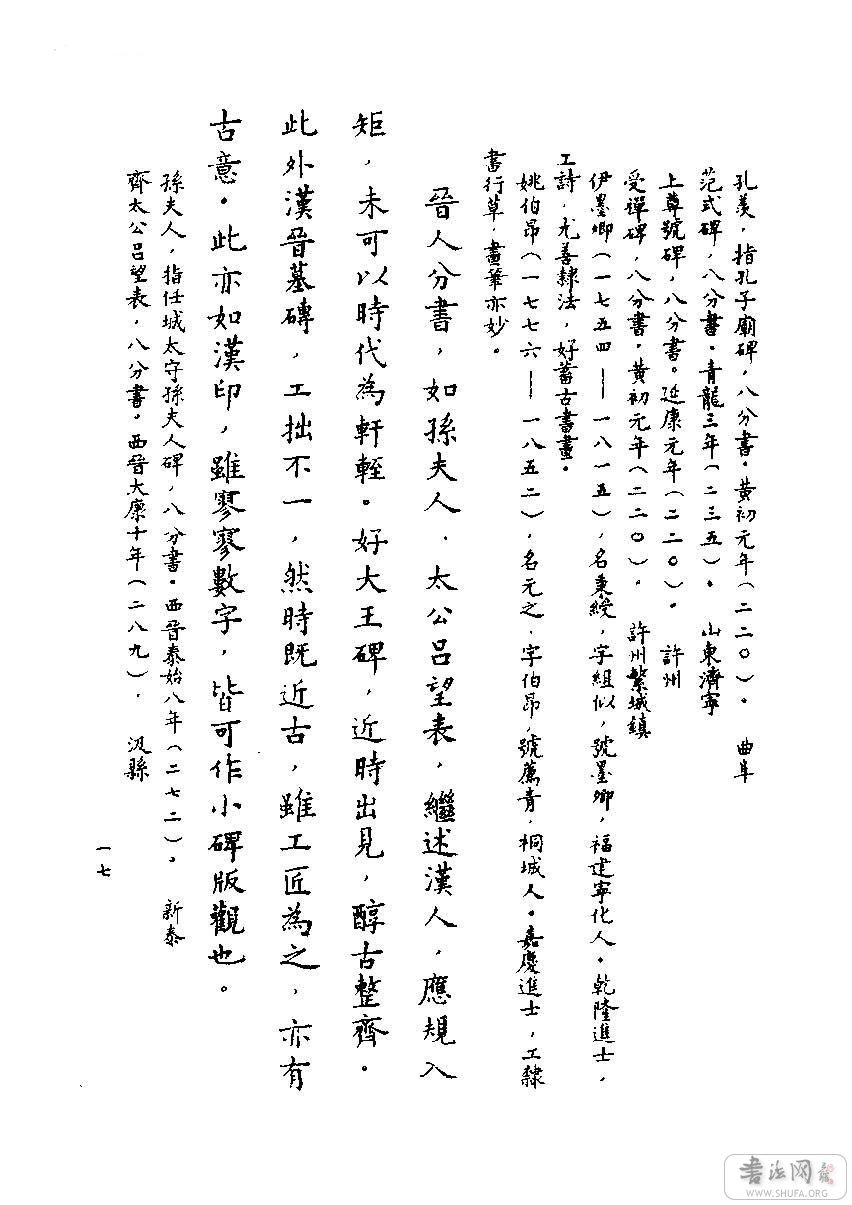 孔羡，指孔子廟碑，八分書。黃初元年（二二〇）。 曲阜
范式碑，八分書。青龍三年（二三五）。 山東濟寧
上尊號碑，八分書。延康元年（二二〇）。 許州
受禪碑，八分書。黃初元年（二二〇）。 許州繁城鎮
伊墨卿（一七五四——一八一五），名秉綬，字組似，號墨卿，福建寧化人。乾隆進士，
工詩，尤善隸法，好蓄古書畫。
姚伯昂（一七七六——一八五二），名元之，字伯昂，號薦青，桐城人。嘉慶進士，工隸
書行草，畫筆亦妙。
晉人分書，如孫夫人、太公呂望表，繼述漢人，應規入
矩，未可以時代為軒輊。好大王碑，近時出見，醇古整齊。
此外漢晉墓磚，工拙不一，然時既近古，雖工匠為之，亦有
古意。此亦如漢印，雖寥寥數字，皆可作小碑版觀也。
孫夫人，指任城太守孫夫人碑，八分書。西晉泰始八年（二七二）。 新泰
齊太公呂望表，八分書。西晉大康十年（二八九）。 汲縣
一七
書法网
WWW.SHUFA.ORG